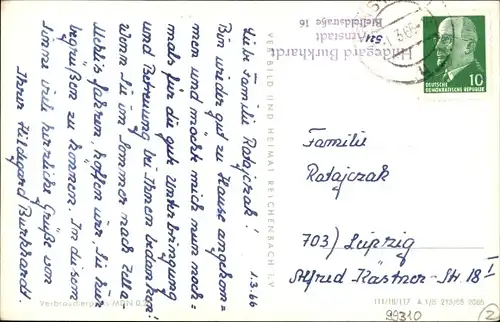 1.3.66
Liebe Familie Ratajczak!
Bin wieder gut zu Hause angekom=
men und möcht mich nun noch=
mals für die gute Unterbringung
und Betreuung bei Ihnen bedanken.
Wenn Sie im Sommer nach Zella-
Mehlis fahren, hoffen wir, Sie hier
begrüßen zu können. In diesem
Sinne viele herzliche Grüße von
Ihrer Hildegard Burkhardt.
VERLAG BILD UND HEIMAT REICHENBACH I. V.
Verbraucherpreis MDN 0,2
Hildegard Burkhardt
521 Arnstadt
Bielfeldstraße 16
DEUTSCHE
DEMOKRATISCHE REPUBLIK
10
Familie
Ratajczak
703) Leipzig
Alfred Kästner-Str. 18 I
III/18/117 A 1/B 213/65 2065
99310
2